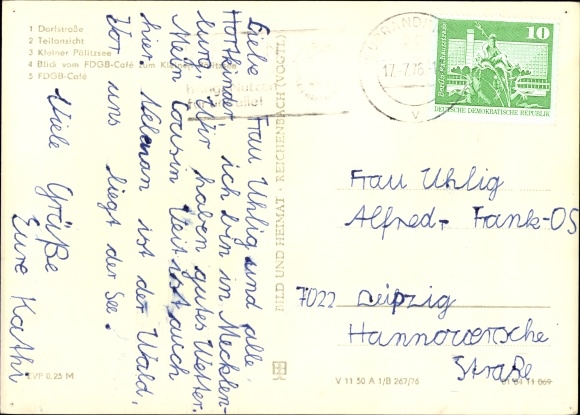 1 Dorfstraße
2 Teilansicht
3 Kleiner Pälitzsee
4 Blick vom FDGB-Café zum Kleinen Pälitzsee
5 FDGB-Café
Liebe Frau Uhlig und alle
Hortkinder, ich bin in Mecklen-
burg. Wir haben gutes Wetter.
Mein Cousin Veit ist auch
hier. Neben an ist der Wald,
Vor uns liegt der See.
Viele Grüße
Eure Kathi
EVP 0,25 M
BILD UND HEIMAT · REICHENBACH (VOGTL)
17.-7.76
10
DEUTSCHE DEMOKRATISCHE REPUBLIK
Frau Uhlig
Alfred- Frank-OS
7022 Leipzig
Hannoversche
Straße
V 11 50 A 1/B 267/76
01 04 11 069